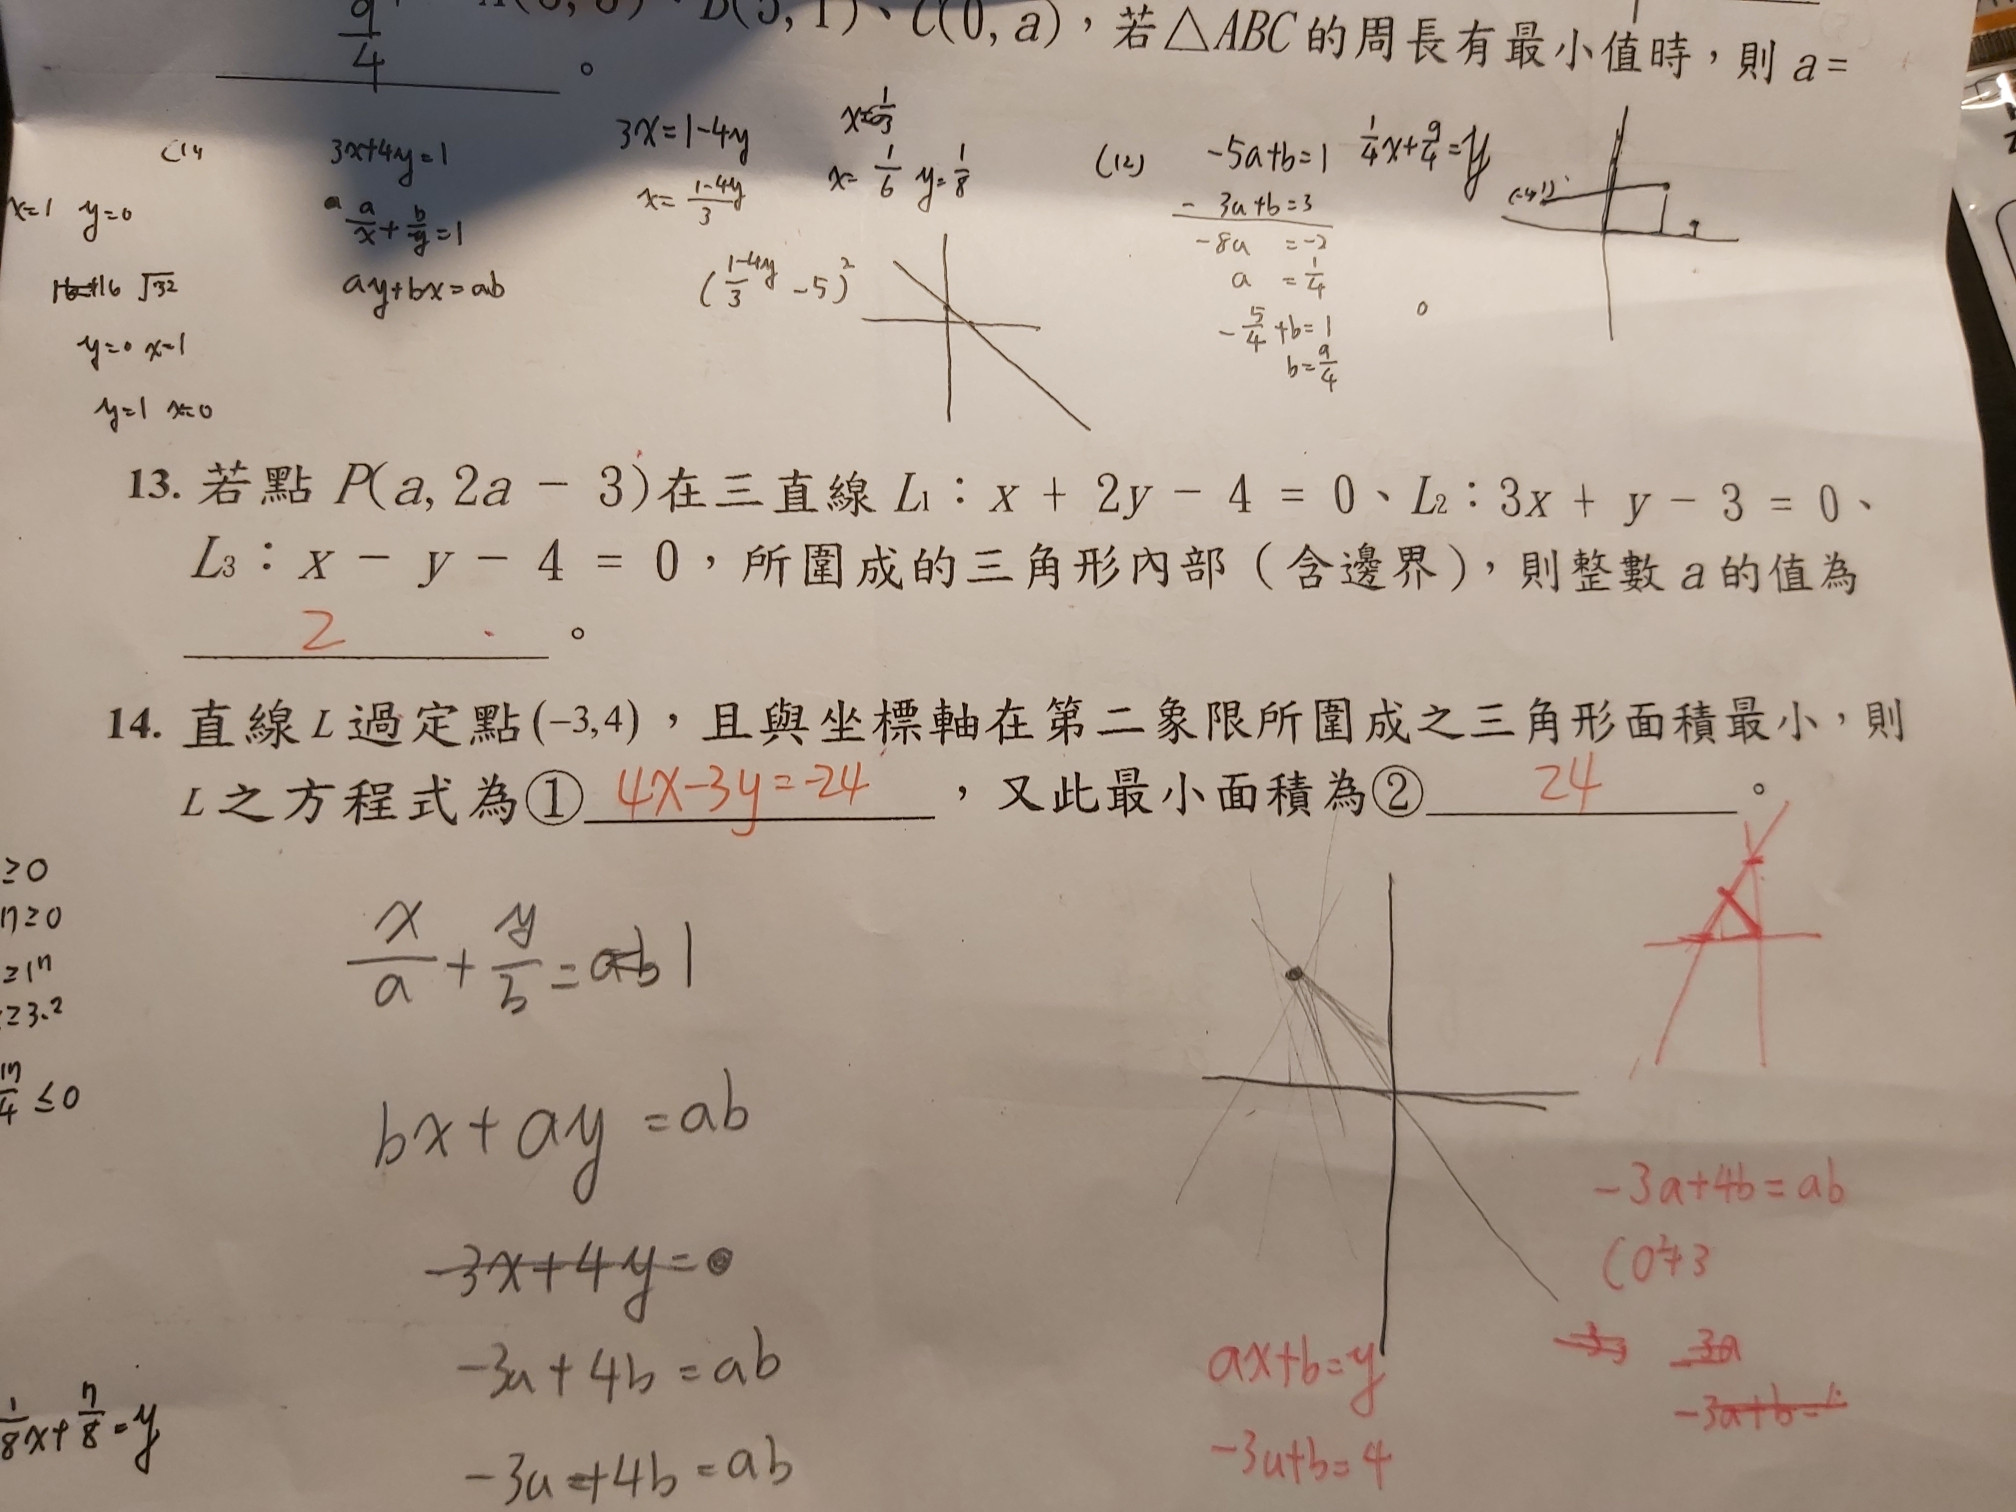 B(5, 1)、C(0, a)，若△ABC的周長有最小值時，則 a =
9/4 。
3x+4y=1
a/x + b/y = 1
ay+bx=ab
x=1 y=0
16+16 √32
y=0 x=1
y=1 x=0
3x=1-4y
x= (1-4y)/3
((1-4y)/3 -5)²
x= 1/6 y= 1/8
(12) -5a+b=1
- 3a+b=3
-8a =-2
a = 1/4
- 5/4 +b=1
b= 9/4
1/4 x+ 9/4 =y
13. 若點 P(a, 2a - 3)在三直線 L1：x + 2y - 4 = 0、L2：3x + y - 3 = 0、
L3：x - y - 4 = 0，所圍成的三角形內部（含邊界），則整數 a 的值為
2 。
14. 直線 L 過定點(-3,4)，且與坐標軸在第二象限所圍成之三角形面積最小，則
L 之方程式為① 4x-3y=-24 ，又此最小面積為② 24 。
≥0
≥0
≤0
1/8 x+ 7/8 =y
x/a + y/b = ab 1
bx+ay=ab
-3x+4y=0
-3a+4b=ab
-3a+4b=ab
ax+b=y
-3a+b=4
-3a+4b=ab
(0²+3
-3a
-3a+b=